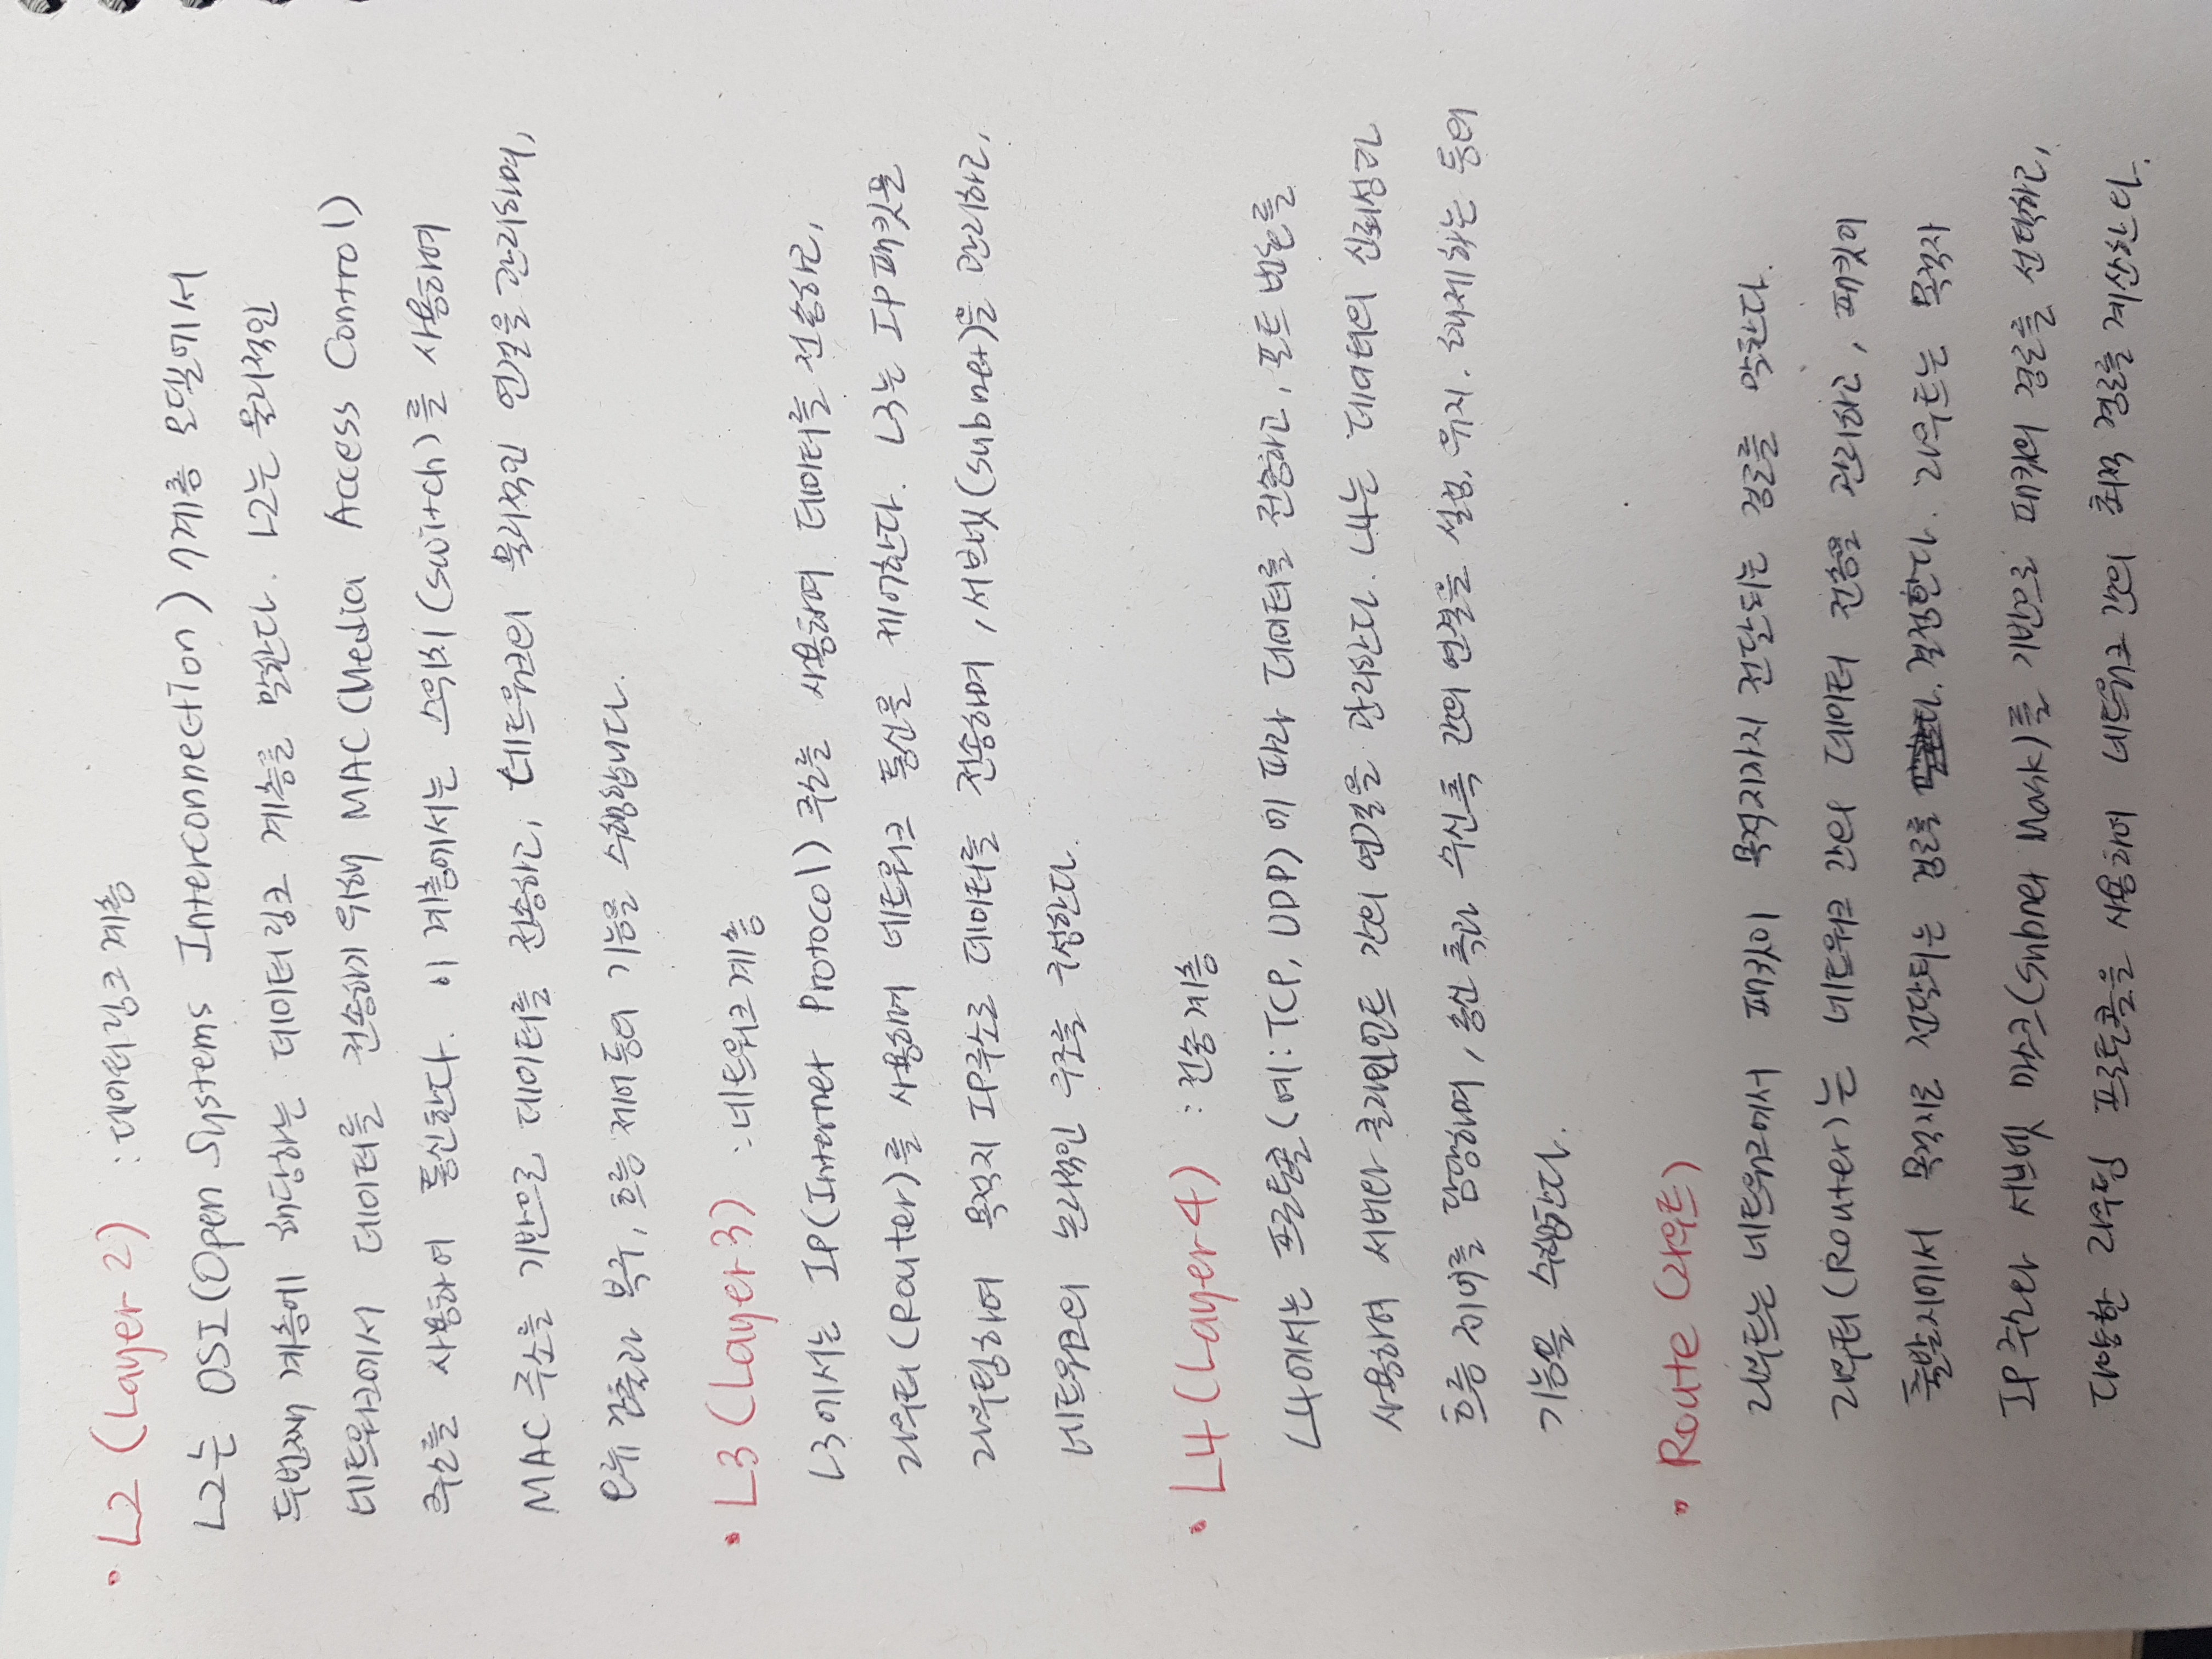 · L2 (Layer 2) : 데이터링크 계층
L2는 OSI(Open Systems Interconnection) 7계층 모델에서
두번째 계층에 해당하는 데이터 링크 계층을 말한다. L2는 물리적인
네트워크에서 데이터를 전송하기 위해 MAC(Media Access Control)
주소를 사용하여 통신한다. 이 계층에서는 스위치(switch)를 사용하여
MAC 주소를 기반으로 데이터를 전송하고, 네트워크의 물리적인 연결을 관리하며,
오류 검출과 복구, 흐름 제어 등의 기능을 수행합니다.
· L3 (Layer 3) : 네트워크 계층
L3에서는 IP(Internet Protocol) 주소를 사용하여 데이터를 전송하고,
라우터(Router)를 사용하여 네트워크 통신을 제어한다. L3는 IP 패킷을
라우팅하여 목적지 IP주소로 데이터를 전송하며, 서브넷(subnet)을 관리하고,
네트워크의 논리적인 구조를 구성한다.
· L4 (Layer 4) : 전송 계층
L4에서는 프로토콜(예: TCP, UDP)에 따라 데이터를 전송하고, 포트 번호를
사용하여 서버와 클라이언트 간의 연결을 관리한다. L4는 데이터의 신뢰성과
흐름 제어를 담당하며, 송신측과 수신측 간의 연결을 설정, 유지. 해제하는 등의
기능을 수행한다.
· Route (라우트)
라우트는 네트워크에서 패킷이 목적지까지 전달되는 경로를 말한다.
라우터(Router)는 네트워크 간의 데이터 전송을 관리하고, 패킷이
출발지에서 목적지로 전달되는 경로를 결정한다. 라우트는 목적지
IP 주소와 서브넷 마스크(Subnet Mask)를 기반으로 패킷의 경로를 선택하고,
다양한 라우팅 프로토콜을 사용하여 네트워크 간의 최적 경로를 계산한다.